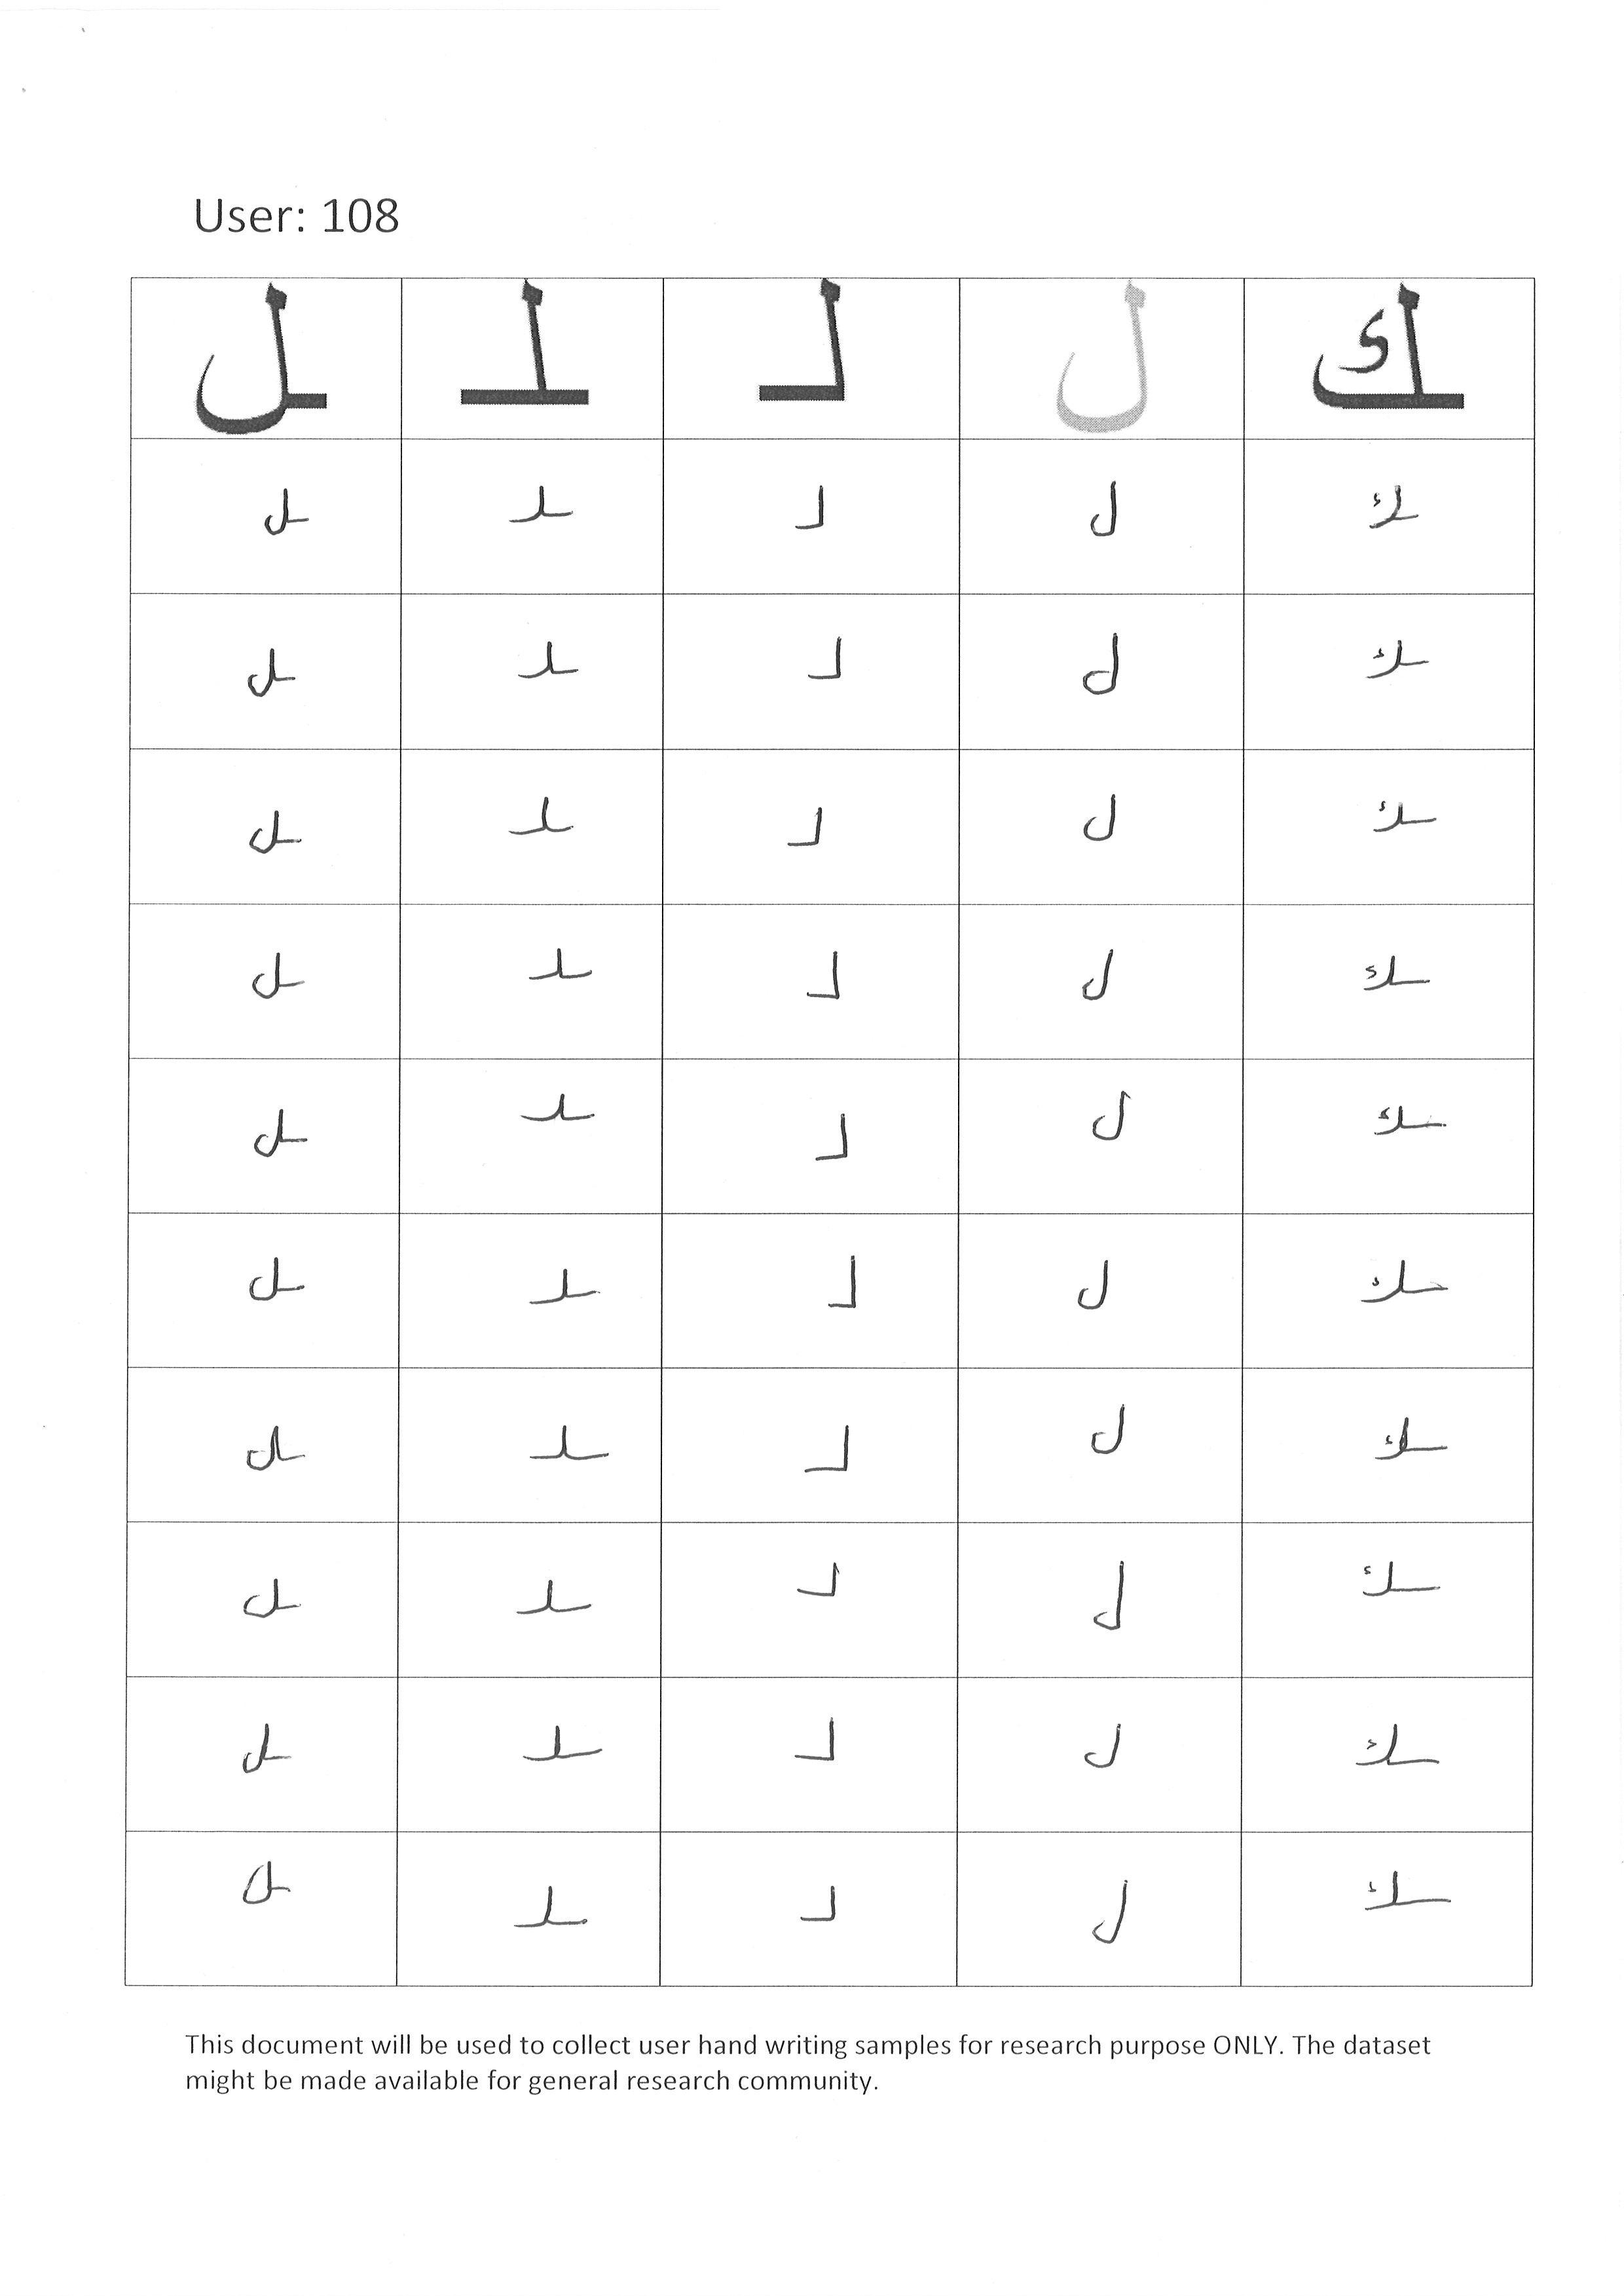 User: 108
ـل ـلـ لـ ل ـك
ـل ـلـ لـ ل ـك
ـل ـلـ لـ ل ـك
ـل ـلـ لـ ل ـك
ـل ـلـ لـ ل ـك
ـل ـلـ لـ ل ـك
ـل ـلـ لـ ل ـك
ـل ـلـ لـ ل ـك
ـل ـلـ لـ ل ـك
ـل ـلـ لـ ل ـك
ـل ـلـ لـ ل ـك
This document will be used to collect user hand writing samples for research purpose ONLY. The dataset
might be made available for general research community.